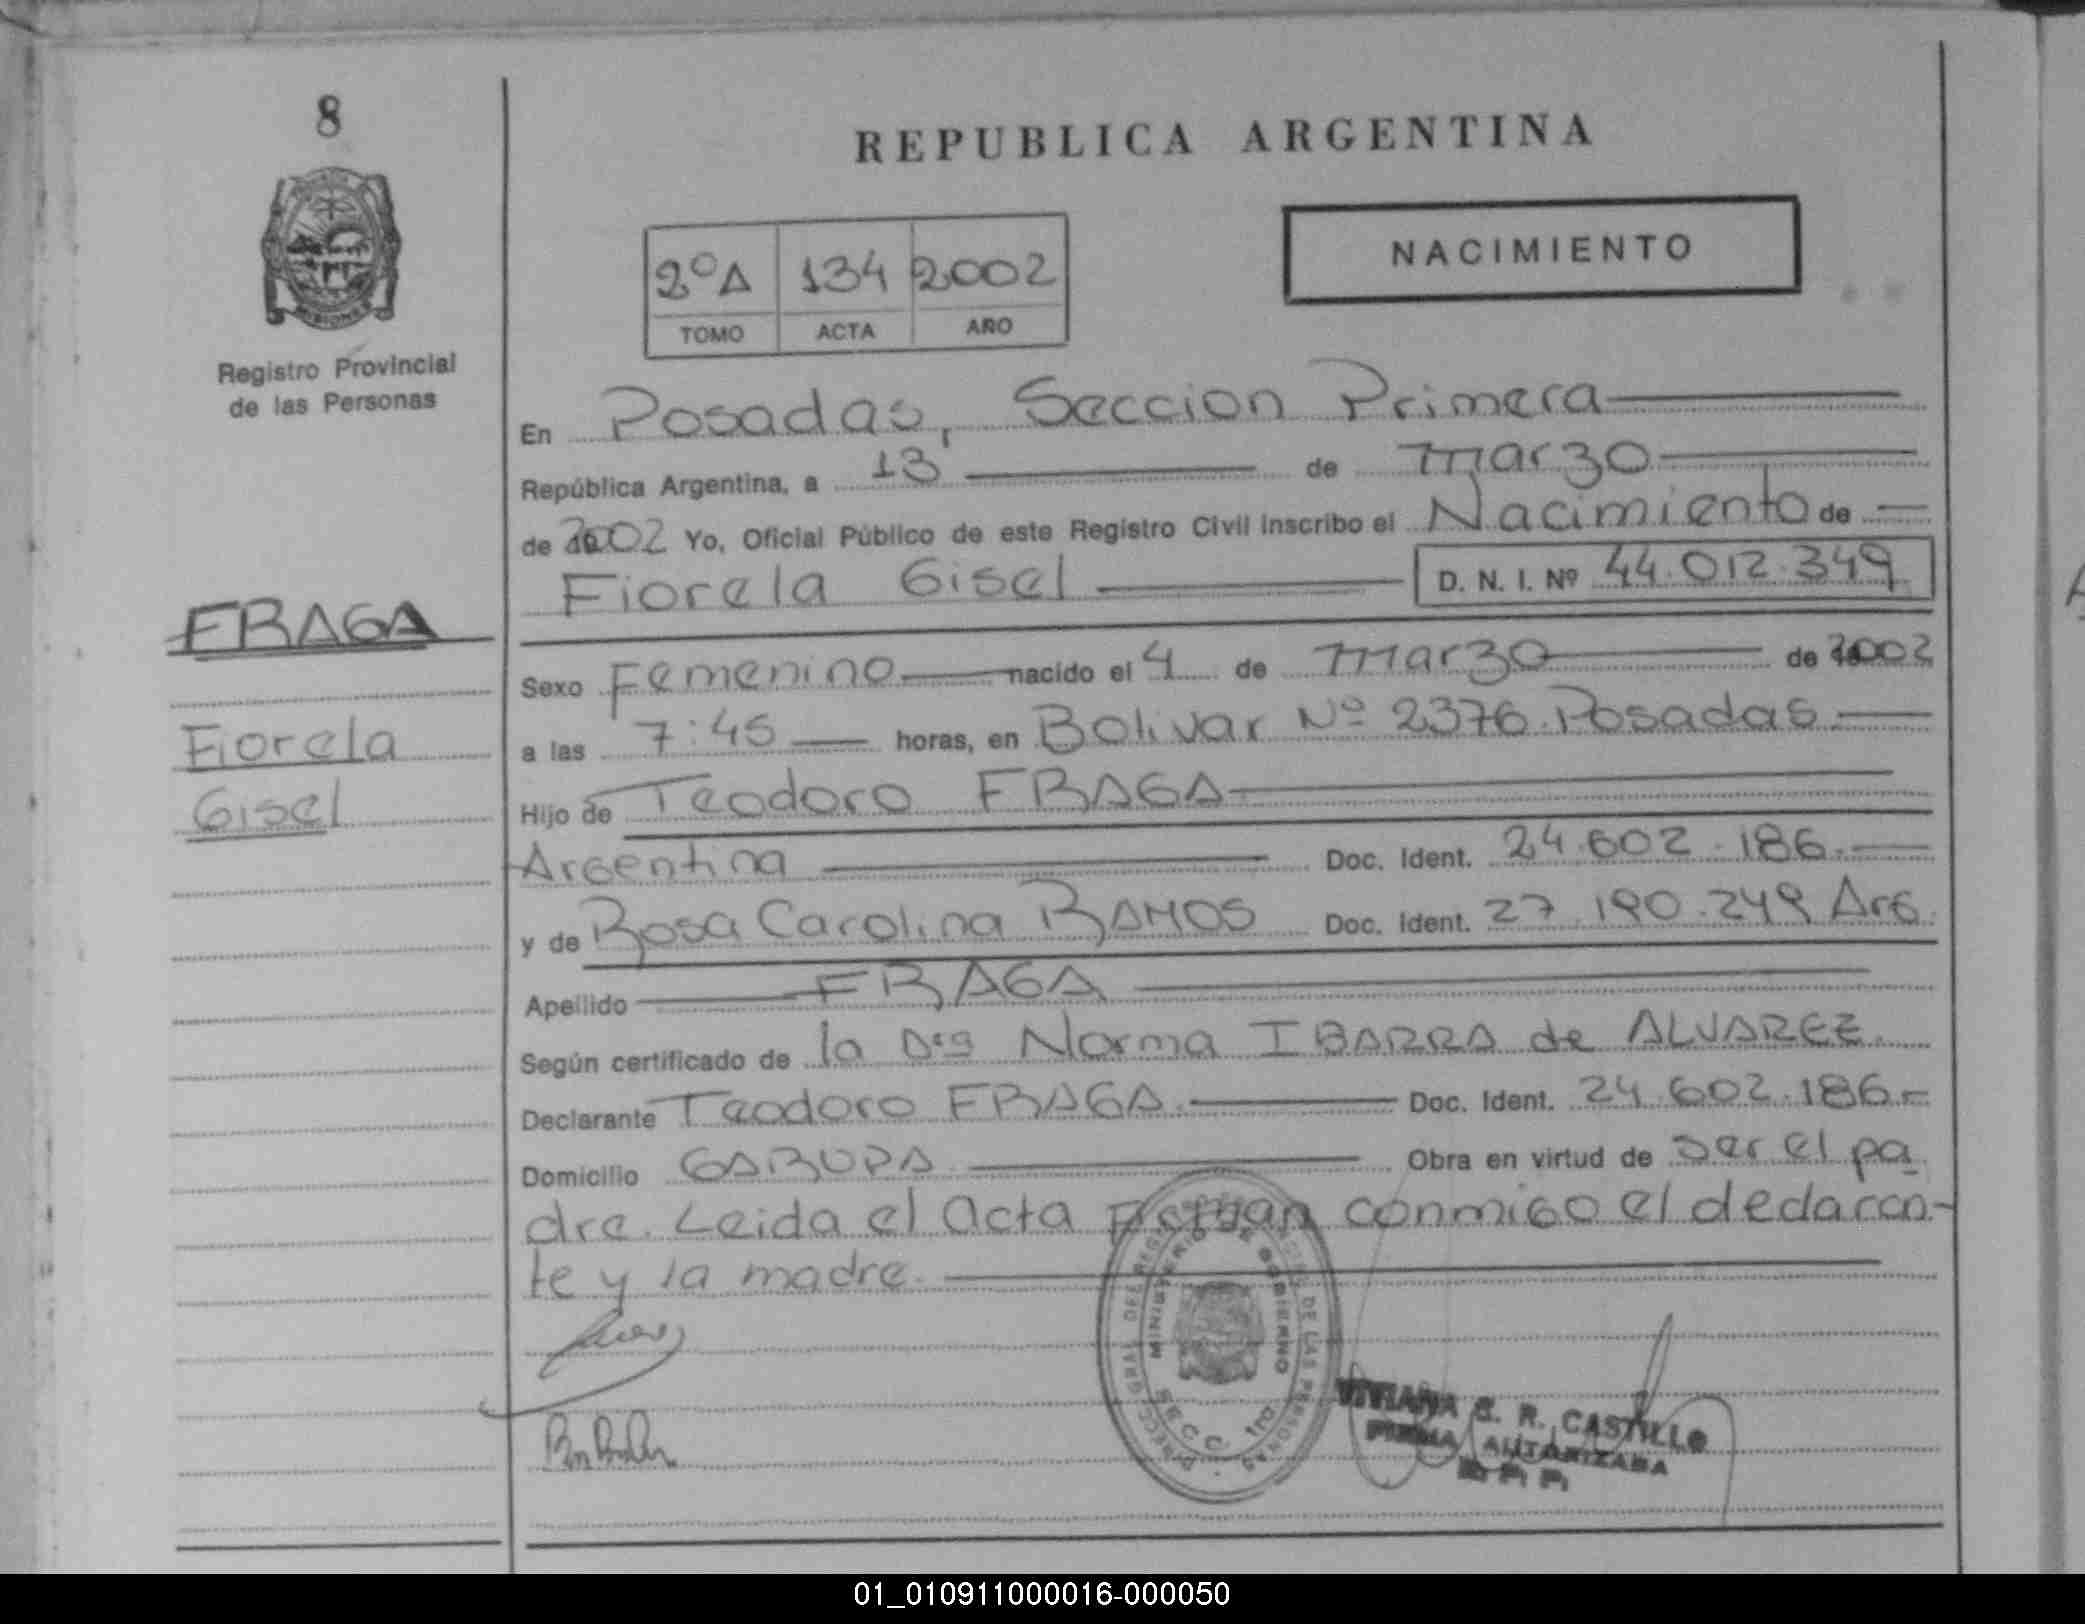 8
MISIONES
Registro Provincial
de las Personas
FRAGA
Fiorela
Gisel
REPUBLICA ARGENTINA
2º A 134 2002
TOMO ACTA AÑO
NACIMIENTO
En Posadas, Seccion Primera
República Argentina, a 13 de marzo
de 2002 Yo, Oficial Público de este Registro Civil inscribo el Nacimiento de
Fiorela Gisel D. N. I. Nº 44.012.349
Sexo Femenino nacido el 4 de marzo de 2002
a las 7:45 horas, en Bolivar Nº 2376. Posadas
Hijo de Teodoro FRAGA
Argentina Doc. Ident. 24.602.186.
y de Rosa Carolina RAMOS Doc. Ident. 27.190.249 Arg.
Apellido FRAGA
Según certificado de la Dra Norma IBARRA de ALVAREZ.
Declarante Teodoro FRAGA. Doc. Ident. 24.602.186-
Domicilio GARUPA Obra en virtud de ser el pa
dre. Leida el acta firman conmigo el declaran-
te y la madre.
DIRECC. GRAL. DEL REGISTRO DE LAS PERSONAS
MINISTERIO DE GOBIERNO
SECC. 1ra
VIVIANA S. R. CASTILLO
FIRMA AUTORIZADA
01_010911000016-000050